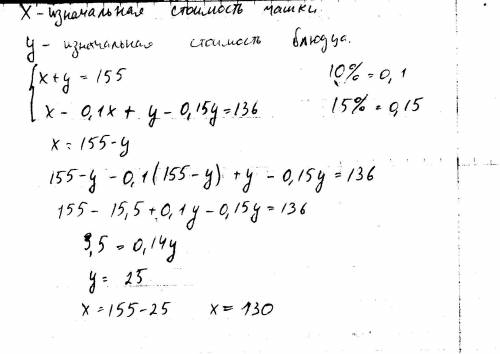 x - изначальная стоимость чашки
y - изначальная стоимость блюдца.
x + y = 155
10% = 0,1
x - 0,1x + y - 0,15y = 136
15% = 0,15
x = 155 - y
155 - y - 0,1(155 - y) + y - 0,15y = 136
155 - 15,5 + 0,1y - 0,15y = 136
3,5 = 0,14y
y = 25
x = 155 - 25 x = 130